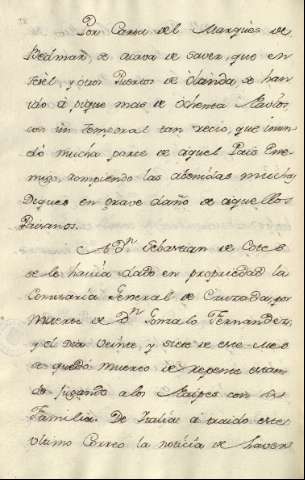 Por Carta del Marqués de
Bedmar, se acava de saver, que en
Texel, y otros Puertos de olanda se han
ido á pique mas de ochenta Navios,
con un temporal tan recio, que inun
dó mucha parte de aquel Pais Ene-
migo, rompiendo las abenidas muchos
Diques en grave daño de aquellos
Paysanos.
A Dn Sebastian de Cotes
se le havia dado en propiedad la
Comisaria General de Cruzada, por
muerte de Dn Gonzalo Fernandez,
y el dia veinte, y siete de este Mes
se quedó muerto de repente estan
do jugando a los Naipes con su
Familia. De Italia á traido este
ultimo Correo la noticia de haver